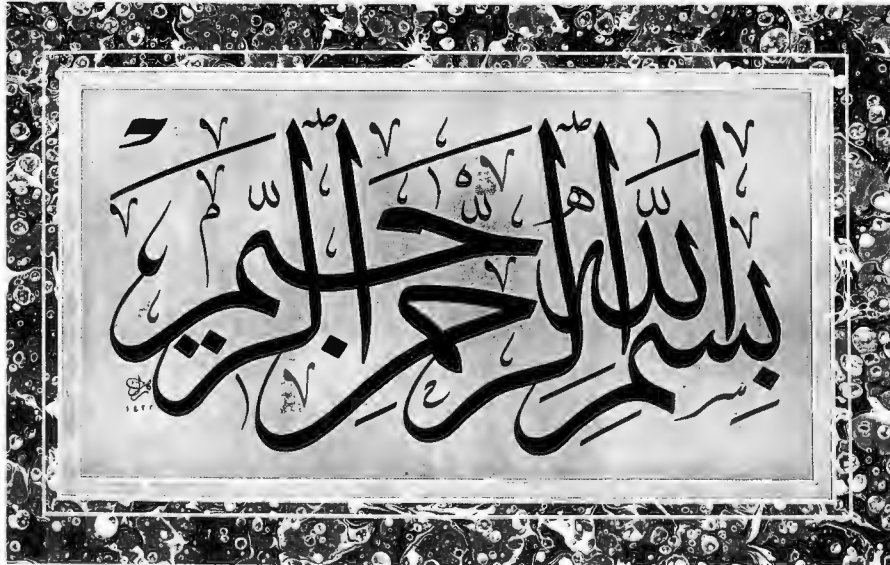 بِسْمِ اللَّهِ الرَّحْمٰنِ الرَّحِيمِ
١٤٢٢